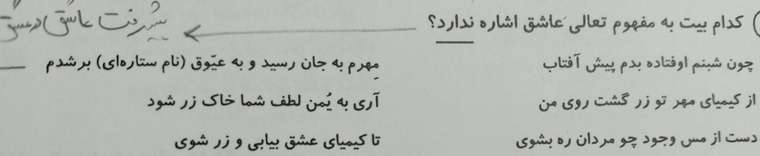 کدام بیت به مفهوم تعالی عاشق اشاره ندارد؟
پیشرفت عاشق در عشق
چون شبنم اوفتاده بدم پیش آفتاب مهرم به جان رسید و به عیّوق (نام ستاره‌ای) برشدم
از کیمیای مهر تو زر گشت روی من آری به یُمن لطف شما خاک زر شود
دست از مس وجود چو مردان ره بشوی تا کیمیای عشق بیابی و زر شوی